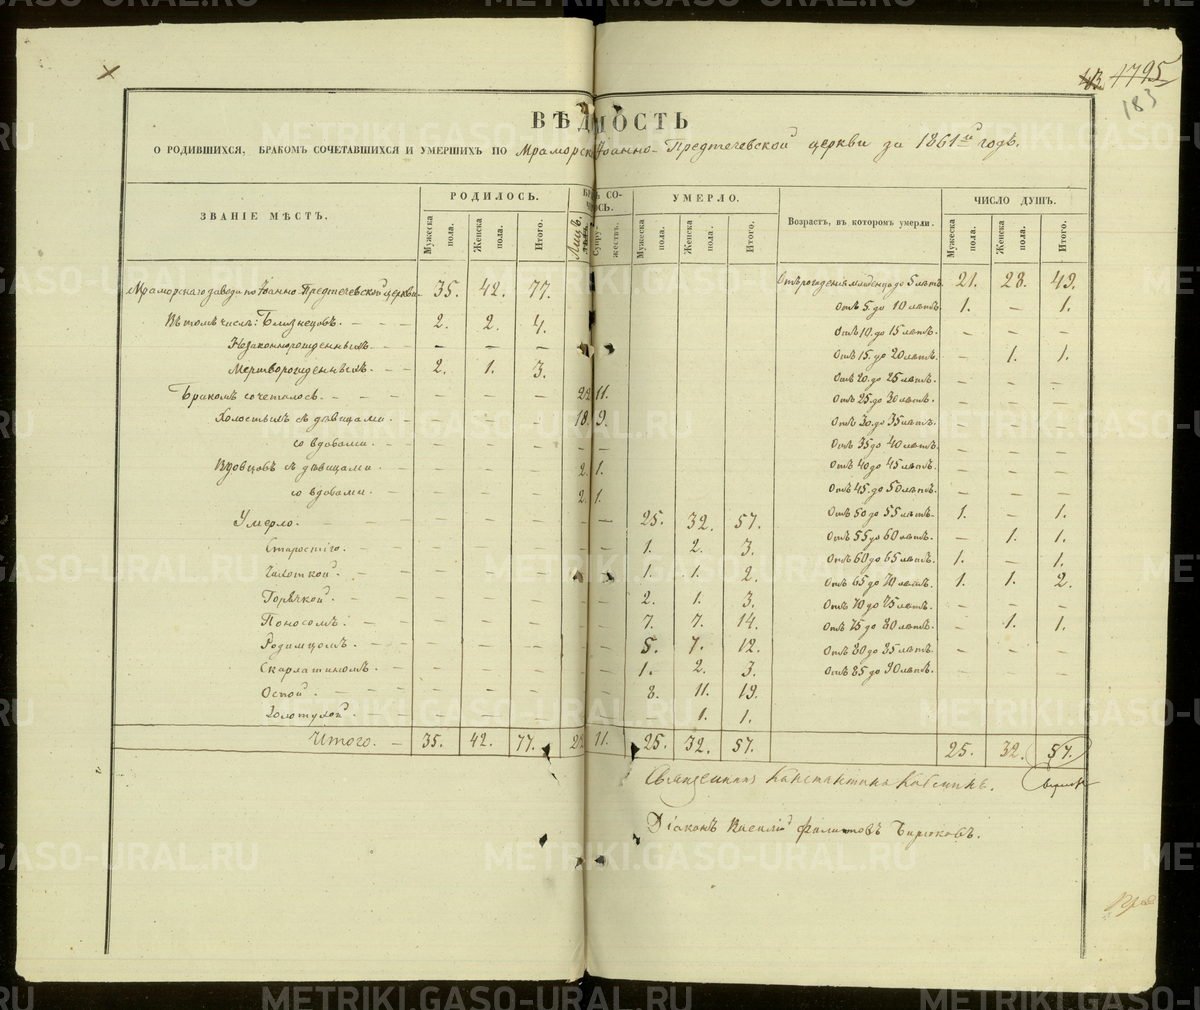 43. 4795
183
ВѢДМОСТЬ
О РОДИВШИХСЯ, БРАКОМЪ СОЧЕТАВШИХСЯ И УМЕРШИХЪ ПО Мраморск Іоанно-Предтечевской церкви за 1861й годъ.
ЗВАНІЕ МѢСТЪ. РОДИЛОСЬ. УМЕРЛО. Возрастъ, въ которомъ умерли. ЧИСЛО ДУШЪ.
Мужеска пола. Женска пола. Итого. Лицъ. Супружествъ. Мужеска пола. Женска пола. Итого. Мужеска пола. Женска пола. Итого.
Мраморскаго завода по Іоанно-Предтечевской церкви 35. 42. 77. Отъ рожденія младенца до 5 лѣтъ. 21. 28. 49.
Отъ 5. до 10 лѣтъ. 1. — 1.
Въ томъ числѣ: Близнецовъ. 2. 2. 4. Отъ 10. до 15 лѣтъ. — — —
Незаконнорожденныхъ — — — Отъ 15. до 20 лѣтъ. — 1. 1.
Мертворожденныхъ. 2. 1. 3. Отъ 20. до 25 лѣтъ. — — —
Бракомъ сочеталось. — — — 22 11. Отъ 25. до 30 лѣтъ. — — —
Холостыхъ съ дѣвицами. — — — 18. 9. Отъ 30. до 35 лѣтъ. — — —
со вдовами. — — — — — Отъ 35 до 40 лѣтъ. — — —
Вдовцовъ съ дѣвицами — — — 2. 1. Отъ 40 до 45 лѣтъ. — — —
со вдовами. — — — 2. 1. Отъ 45. до 50 лѣтъ. — — —
Умерло. — — — — — 25. 32. 57. Отъ 50 до 55 лѣтъ. 1. — 1.
Старостію. — — — — — 1. 2. 3. Отъ 55 до 60 лѣтъ. — 1. 1.
Чахоткой. — — — — — 1. 1. 2. Отъ 60 до 65 лѣтъ. 1. — 1.
Отъ 65 до 70 лѣтъ. 1. 1. 2.
Горячкой. — — — — — 2. 1. 3. Отъ 70 до 75 лѣтъ. — — —
Поносомъ. — — — — — 7. 7. 14. Отъ 75 до 80 лѣтъ. — 1. 1.
Родимцомъ. — — — — — 5. 7. 12. Отъ 80 до 85 лѣтъ. — — —
Скарлатиномъ. — — — — — 1. 2. 3. Отъ 85 до 90 лѣтъ. — — —
Оспой. — — — — — 8. 11. 19.
Золотухой. — — — — — 1. 1.
Итого. 35. 42. 77. 22 11. 25. 32. 57. 25. 32. 57.
Священникъ Константинъ
Діаконъ Василій Бирюковъ.
METRIKI.GASO-URAL.RU